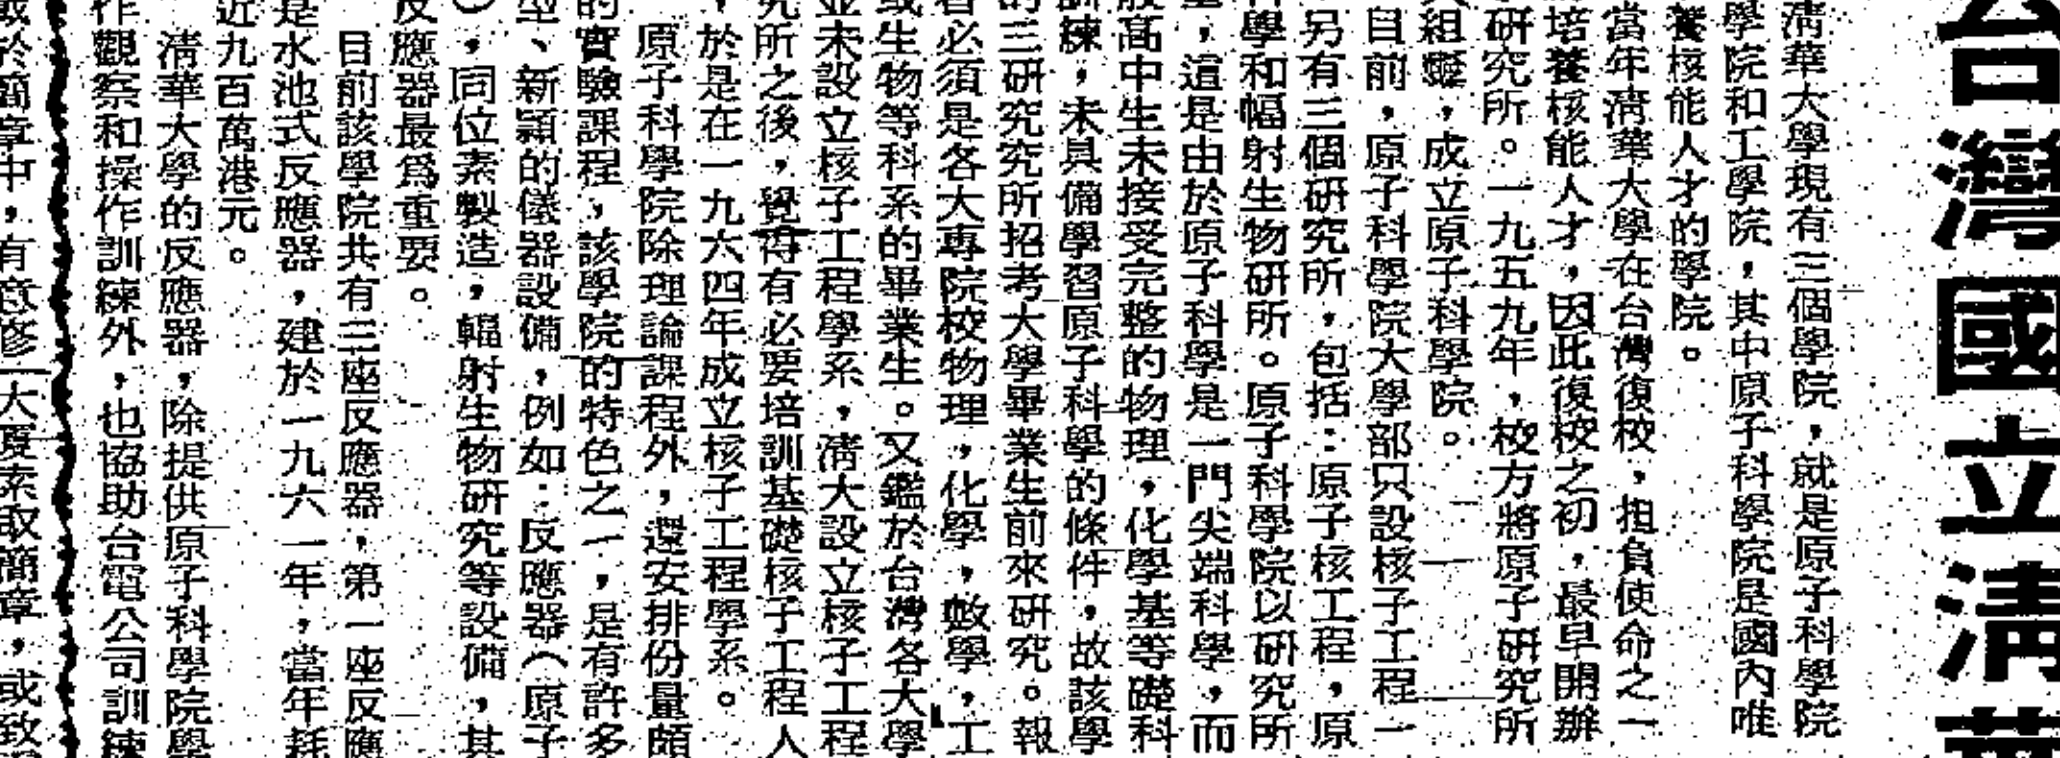 台灣國立清華
清華大學現有三個學院，就是原子科學院
學院和工學院，其中原子科學院是國內唯
養核能人才的學院。
當年清華大學在台灣復校，担負使命之一
培養核能人才，因此復校之初，最早開辦
研究所。一九五九年，校方將原子研究所
組變，成立原子科學院。
目前，原子科學院大學部只設核子工程一
另有三個研究所，包括：原子核工程，原
學和幅射生物研所。原子科學院以研究所
，這是由於原子科學是一門尖端科學，而
高中生未接受完整的物理，化學基等礎科
訓練，未具備學習原子科學的條件，故該學
的三研究究所招考大學畢業生前來研究。報
者必須是各大專院校物理，化學，數學，工
或生物等科系的畢業生。又鑑於台灣各大學
並未設立核子工程學系，清大設立核子工程
究所之後，覺得有必要培訓基礎核子工程人
，於是在一九六四年成立核子工程學系。
原子科學院除理論課程外，還安排份量頗
的實驗課程，該學院的特色之一，是有許多
型、新穎的儀器設備，例如：反應器（原子
，同位素製造，輻射生物研究等設備，其
反應器最爲重要。
目前該學院共有三座反應器，第一座反應
是水池式反應器，建於一九六一年，當年耗
近九百萬港元。
清華大學的反應器，除提供原子科學院學
作觀察和操作訓練外，也協助台電公司訓練
於簡章中，有意修一大廈索取簡章，或致